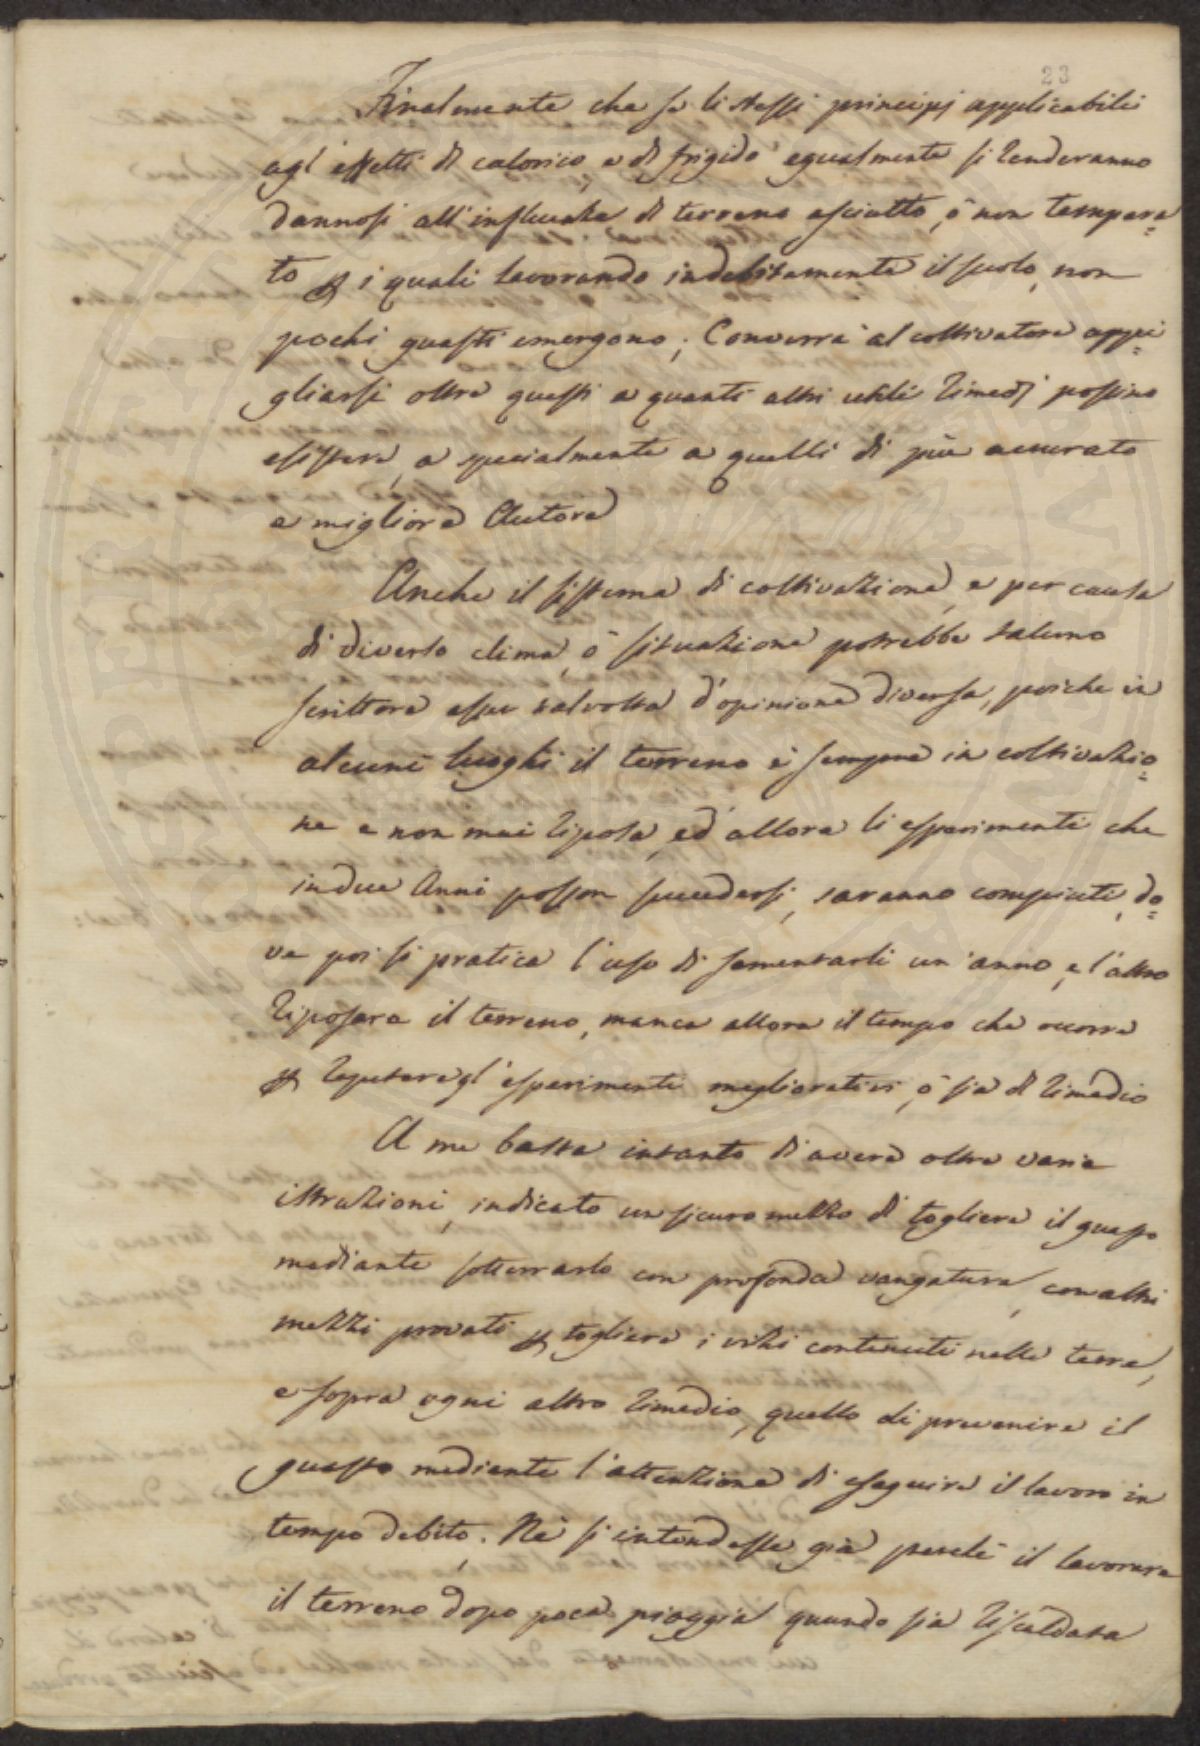 23
Finalmente che se li stessi principj applicabili
agl'effetti di calorico, e di frigido egualmente si renderanno
dannosi all'influenza di terreno asciutto, ò non tempera=
to p i quali lavorando indebitamente il suolo, non
pochi guasti emergono; Converrà al coltivatore appi=
gliarsi oltre questi a quanti altri utili rimedj possino
esistere, e specialmente a quelli di più accurato
e migliore Autore
Anche il sistema di coltivazione, e per causa
di diverso clima, ò situazione potrebbe taluno
scrittore esser talvolta d'opinione diversa, poiche in
alcuni luoghi il terreno è sempre in coltivazio=
ne e non mai riposa, ed allora li esperimenti che
in due Anni posson succedersi, saranno compiuti, do=
ve poi si pratica l'uso di sementarli un'anno, e l'altro
riposare il terreno, manca allora il tempo che occorre
p repetere gl'esperimenti meglioratívi, ò sia di rimedio
A me basta intanto di avere oltre varie
istruzioni, indicato un sicuro mezzo di togliere il guasto
mediante sotterrarlo con profonda vangatura, con altri
mezzi provati p togliere i vizi contenuti nella terra,
e sopra ogni altro rimedio, quello di prevenire il
guasto mediante l'attenzione di eseguire il lavoro in
tempo debito. Nè s'intendesse già perchè il lavorare
il terreno dopo poca pioggia quando sia riscaldata